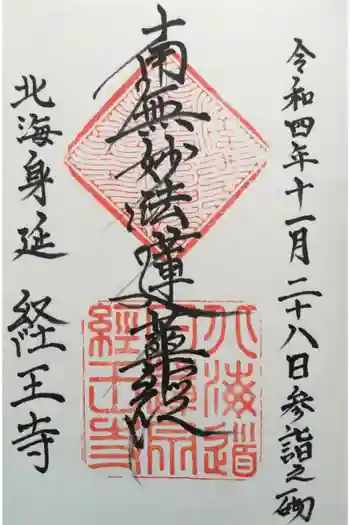 令和四年十一月二十八日参詣之砌
南無妙法蓮華経
北海身延 経王寺
北海道
日蓮宗
経王寺